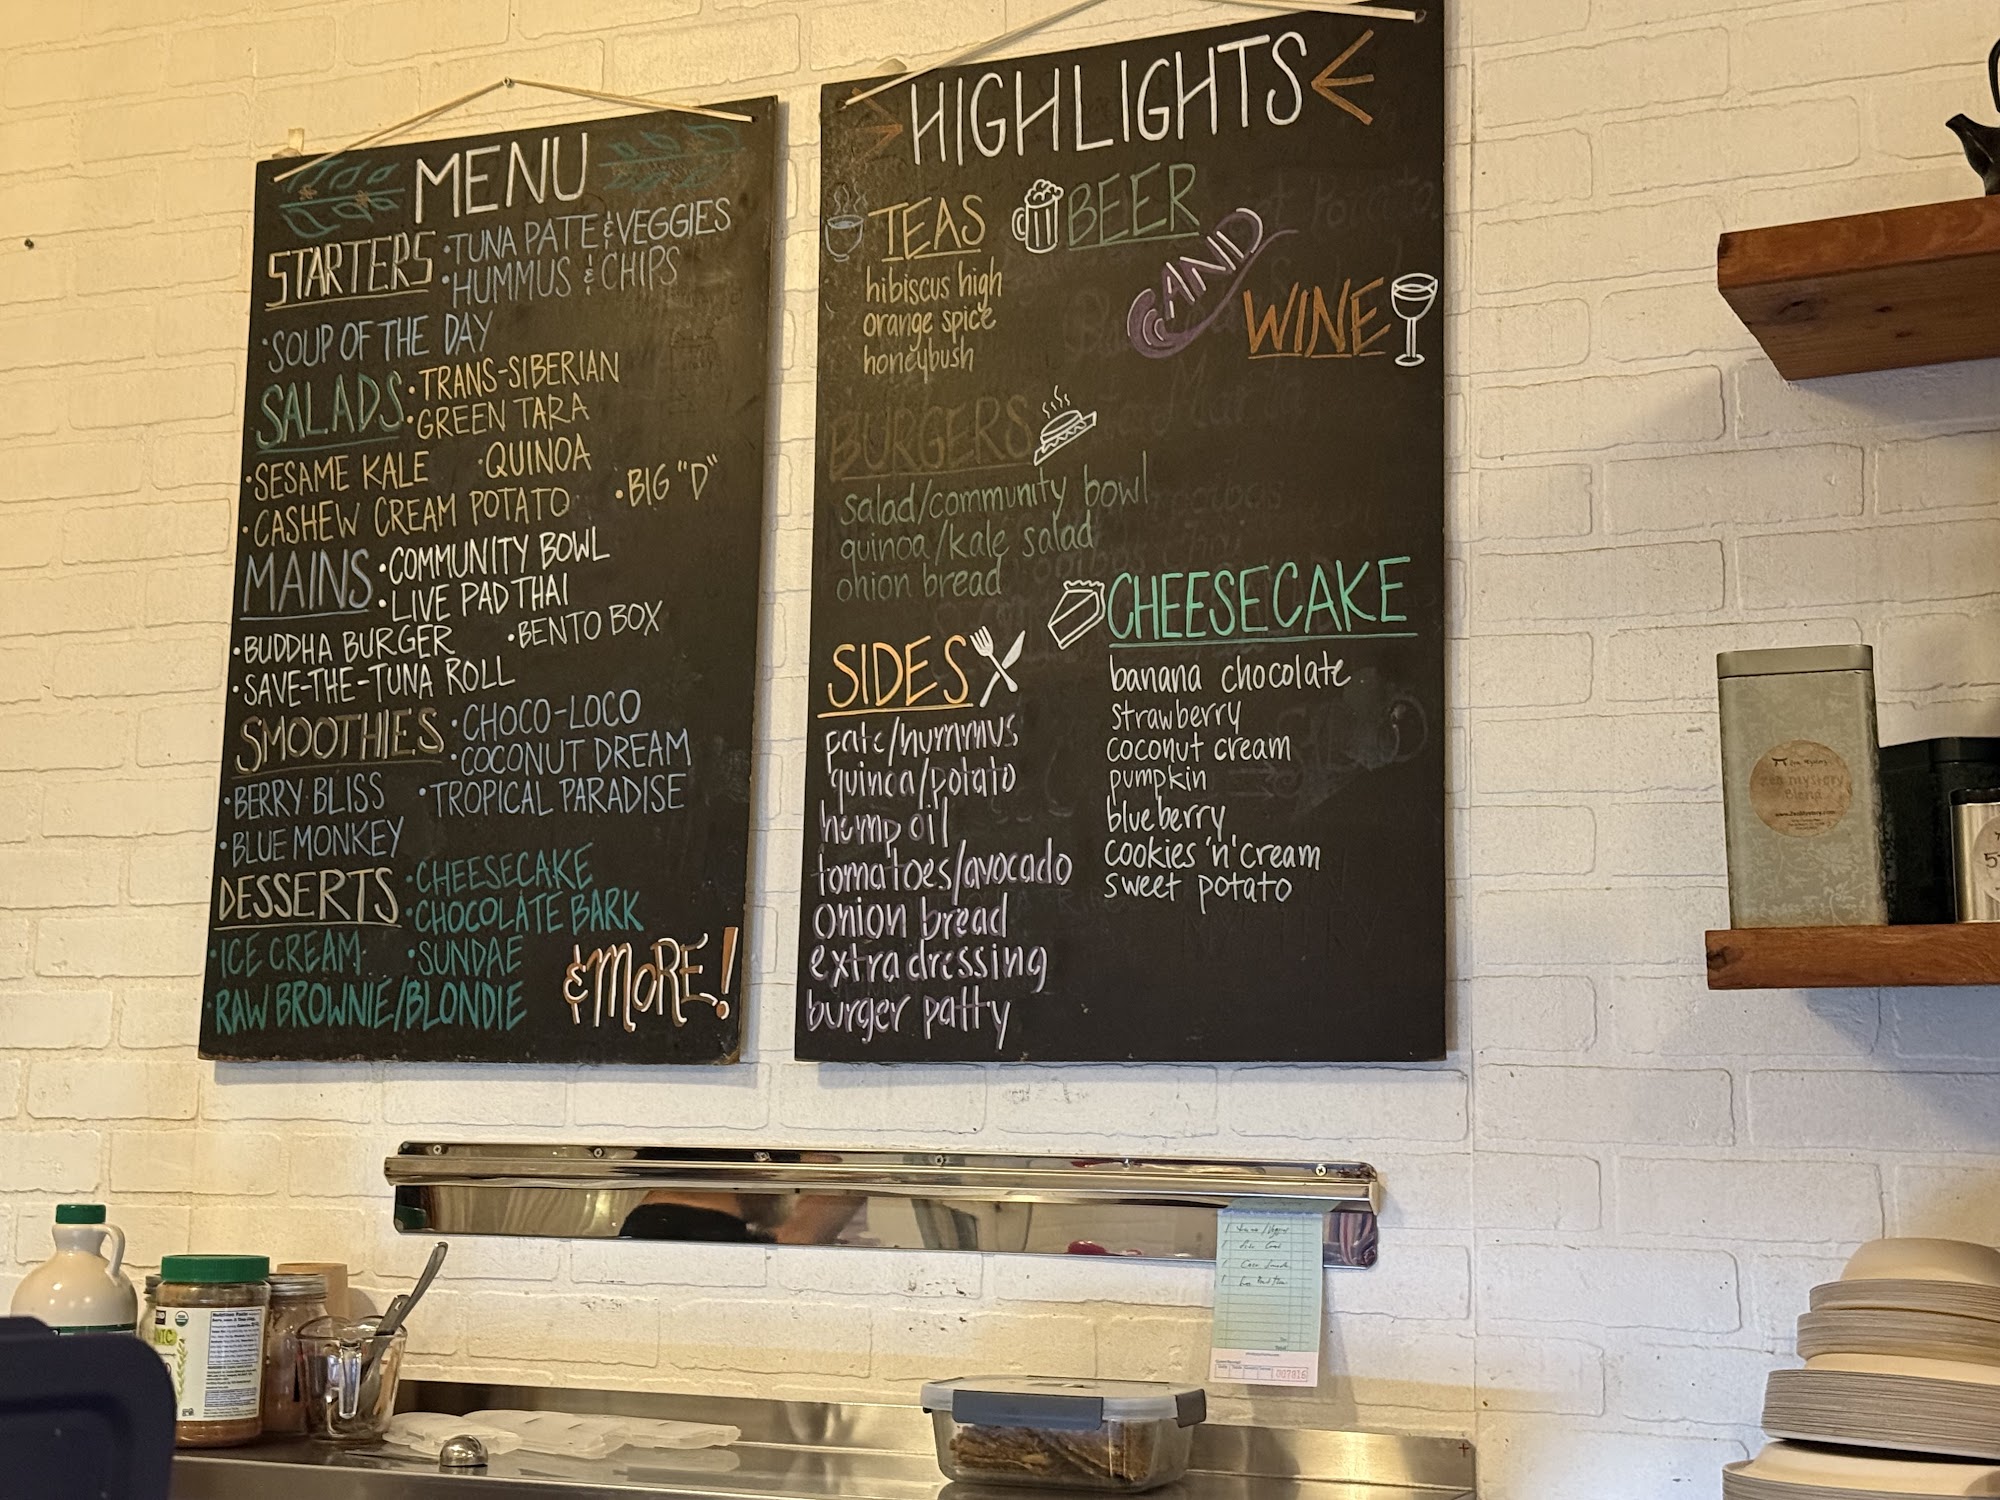 MENU
STARTERS
• TUNA PATE & VEGGIES
• HUMMUS & CHIPS
• SOUP OF THE DAY
SALADS
• TRANS-SIBERIAN
• GREEN TARA
• SESAME KALE
• QUINOA
• CASHEW CREAM POTATO
• BIG "D"
MAINS
• COMMUNITY BOWL
• LIVE PAD THAI
• BUDDHA BURGER
• BENTO BOX
• SAVE-THE-TUNA ROLL
SMOOTHIES
• CHOCO-LOCO
• COCONUT DREAM
• BERRY BLISS
• TROPICAL PARADISE
• BLUE MONKEY
DESSERTS
• CHEESECAKE
• CHOCOLATE BARK
• ICE CREAM
• SUNDAE
• RAW BROWNIE/BLONDIE
& MORE!
HIGHLIGHTS
TEAS
hibiscus high
orange spice
honeybush
BEER
AND
WINE
BURGERS
salad/community bowl
quinoa/kale salad
onion bread
SIDES
pate/hummus
quinoa/potato
hemp oil
tomatoes/avocado
onion bread
extra dressing
burger patty
CHEESECAKE
banana chocolate
strawberry
coconut cream
pumpkin
blueberry
cookies 'n' cream
sweet potato
Zen Mystery
Zen Mystery
Blend
www.ZenMystery.com
Nutrition Facts
007016